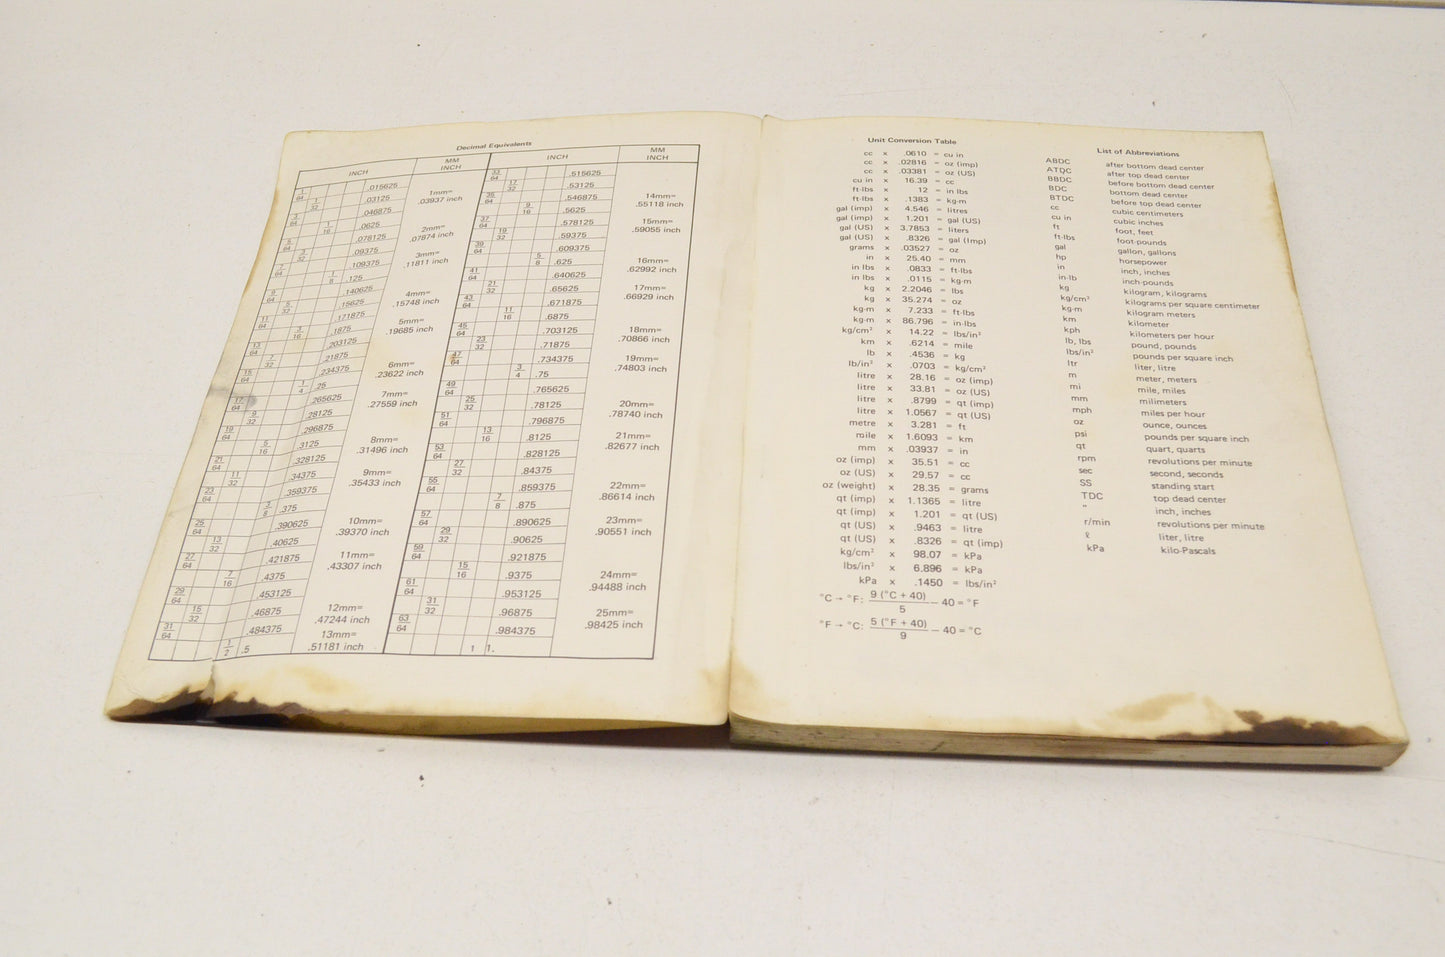 Decimal Equivalents
INCH MM INCH INCH MM INCH
1/64 .015625
1/32 .03125 1mm= .03937 inch
3/64 .046875
1/16 .0625
5/64 .078125 2mm= .07874 inch
3/32 .09375
7/64 .109375 3mm= .11811 inch
1/8 .125
9/64 .140625
5/32 .15625 4mm= .15748 inch
11/64 .171875
3/16 .1875 5mm= .19685 inch
13/64 .203125
7/32 .21875
15/64 .234375 6mm= .23622 inch
1/4 .25
17/64 .265625 7mm= .27559 inch
9/32 .28125
19/64 .296875
5/16 .3125 8mm= .31496 inch
21/64 .328125
11/32 .34375 9mm= .35433 inch
23/64 .359375
3/8 .375
25/64 .390625 10mm= .39370 inch
13/32 .40625
27/64 .421875 11mm= .43307 inch
7/16 .4375
29/64 .453125
15/32 .46875 12mm= .47244 inch
31/64 .484375
1/2 .5 13mm= .51181 inch
33/64 .515625
17/32 .53125
35/64 .546875 14mm= .55118 inch
9/16 .5625
37/64 .578125 15mm= .59055 inch
19/32 .59375
39/64 .609375
5/8 .625 16mm= .62992 inch
41/64 .640625
21/32 .65625 17mm= .66929 inch
43/64 .671875
11/16 .6875
45/64 .703125 18mm= .70866 inch
23/32 .71875
47/64 .734375 19mm= .74803 inch
3/4 .75
49/64 .765625
25/32 .78125 20mm= .78740 inch
51/64 .796875
13/16 .8125 21mm= .82677 inch
53/64 .828125
27/32 .84375
55/64 .859375 22mm= .86614 inch
7/8 .875
57/64 .890625 23mm= .90551 inch
29/32 .90625
59/64 .921875
15/16 .9375 24mm= .94488 inch
61/64 .953125
31/32 .96875 25mm= .98425 inch
63/64 .984375
1 1.
Unit Conversion Table
cc × .0610 = cu in
cc × .02816 = oz (imp)
cc × .03381 = oz (US)
cu in × 16.39 = cc
ft·lbs × 12 = in lbs
ft·lbs × .1383 = kg·m
gal (imp) × 4.546 = litres
gal (imp) × 1.201 = gal (US)
gal (US) × 3.7853 = liters
gal (US) × .8326 = gal (Imp)
grams × .03527 = oz
in × 25.40 = mm
in lbs × .0833 = ft·lbs
in lbs × .0115 = kg·m
kg × 2.2046 = lbs
kg × 35.274 = oz
kg·m × 7.233 = ft·lbs
kg·m × 86.796 = in·lbs
kg/cm² × 14.22 = lbs/in²
km × .6214 = mile
lb × .4536 = kg
lb/in² × .0703 = kg/cm²
litre × 28.16 = oz (imp)
litre × 33.81 = oz (US)
litre × .8799 = qt (imp)
litre × 1.0567 = qt (US)
metre × 3.281 = ft
mile × 1.6093 = km
mm × .03937 = in
oz (imp) × 35.51 = cc
oz (US) × 29.57 = cc
oz (weight) × 28.35 = grams
qt (imp) × 1.1365 = litre
qt (imp) × 1.201 = qt (US)
qt (US) × .9463 = litre
qt (US) × .8326 = qt (imp)
kg/cm² × 98.07 = kPa
lbs/in² × 6.896 = kPa
kPa × .1450 = lbs/in²
°C → °F: 9 (°C + 40)/5 – 40 = °F
°F → °C: 5 (°F + 40)/9 – 40 = °C
List of Abbreviations
ABDC after bottom dead center
ATQC after top dead center
BBDC before bottom dead center
BDC bottom dead center
BTDC before top dead center
cc cubic centimeters
cu in cubic inches
ft foot, feet
ft·lbs foot·pounds
gal gallon, gallons
hp horsepower
in inch, inches
in·lb inch·pounds
kg kilogram, kilograms
kg/cm² kilograms per square centimeter
kg·m kilogram meters
km kilometer
kph kilometers per hour
lb, lbs pound, pounds
lbs/in² pounds per square inch
ltr liter, litre
m meter, meters
mi mile, miles
mm milimeters
mph miles per hour
oz ounce, ounces
psi pounds per square inch
qt quart, quarts
rpm revolutions per minute
sec second, seconds
SS standing start
TDC top dead center
" inch, inches
r/min revolutions per minute
ℓ liter, litre
kPa kilo·Pascals